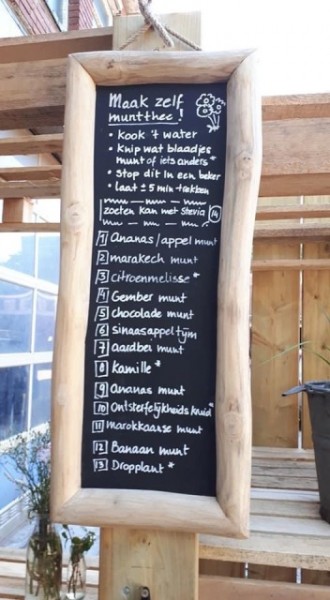 Maak zelf
muntthee!
• Kook 't water
• Knip wat blaadjes
munt of iets anders*
• Stop dit in een beker
• laat ± 5 min trekken
zoeten kan met Stevia 14
1 Ananas/appel munt
2 marakech munt
3 citroenmelisse*
4 Gember munt
5 chocolade munt
6 sinaasappeltijm
7 aardbei munt
8 Kamille*
9 Ananas munt
10 Onsterfelijkheids kruid*
11 marokkaanse munt
12 Banaan munt
13 Dropplant*